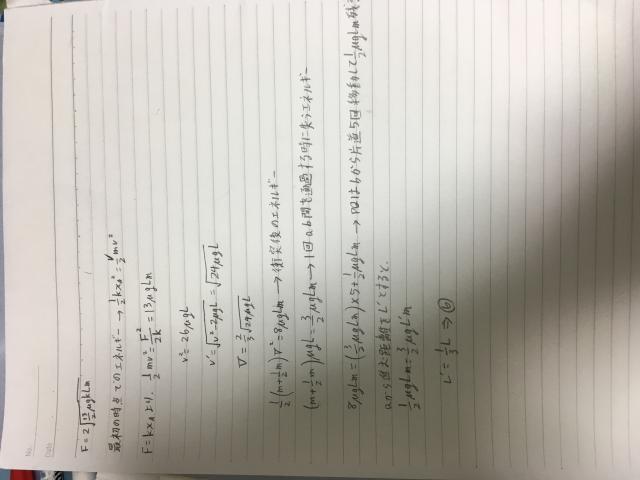 No.
Date
F = 2√(13/2 μgkLm)
最初の時点でのエネルギー → 1/2 kx₀² = 1/2 mv²
F = kx₀より、1/2 mv² = F²/2k = 13μgLm
v² = 26μgL
v' = √(v² - 2μgL) = √(24μgL)
V = 2/3 √(24μgL)
1/2 (m + 1/2 m) V² = 8μgLm → 衝突後のエネルギー
(m + 1/2 m) μgL = 3/2 μgLm → 1回ab間を通過する時に失うエネルギー
8μgLm = (3/2 μgLm) × 5 + 1/2 μgLm → PQはbから片道5回移動して 1/2 μgLm 残
aから進む距離をL'とすると、
1/2 μgLm = 3/2 μgL'm
L' = 1/3 L ⇒ ⑥